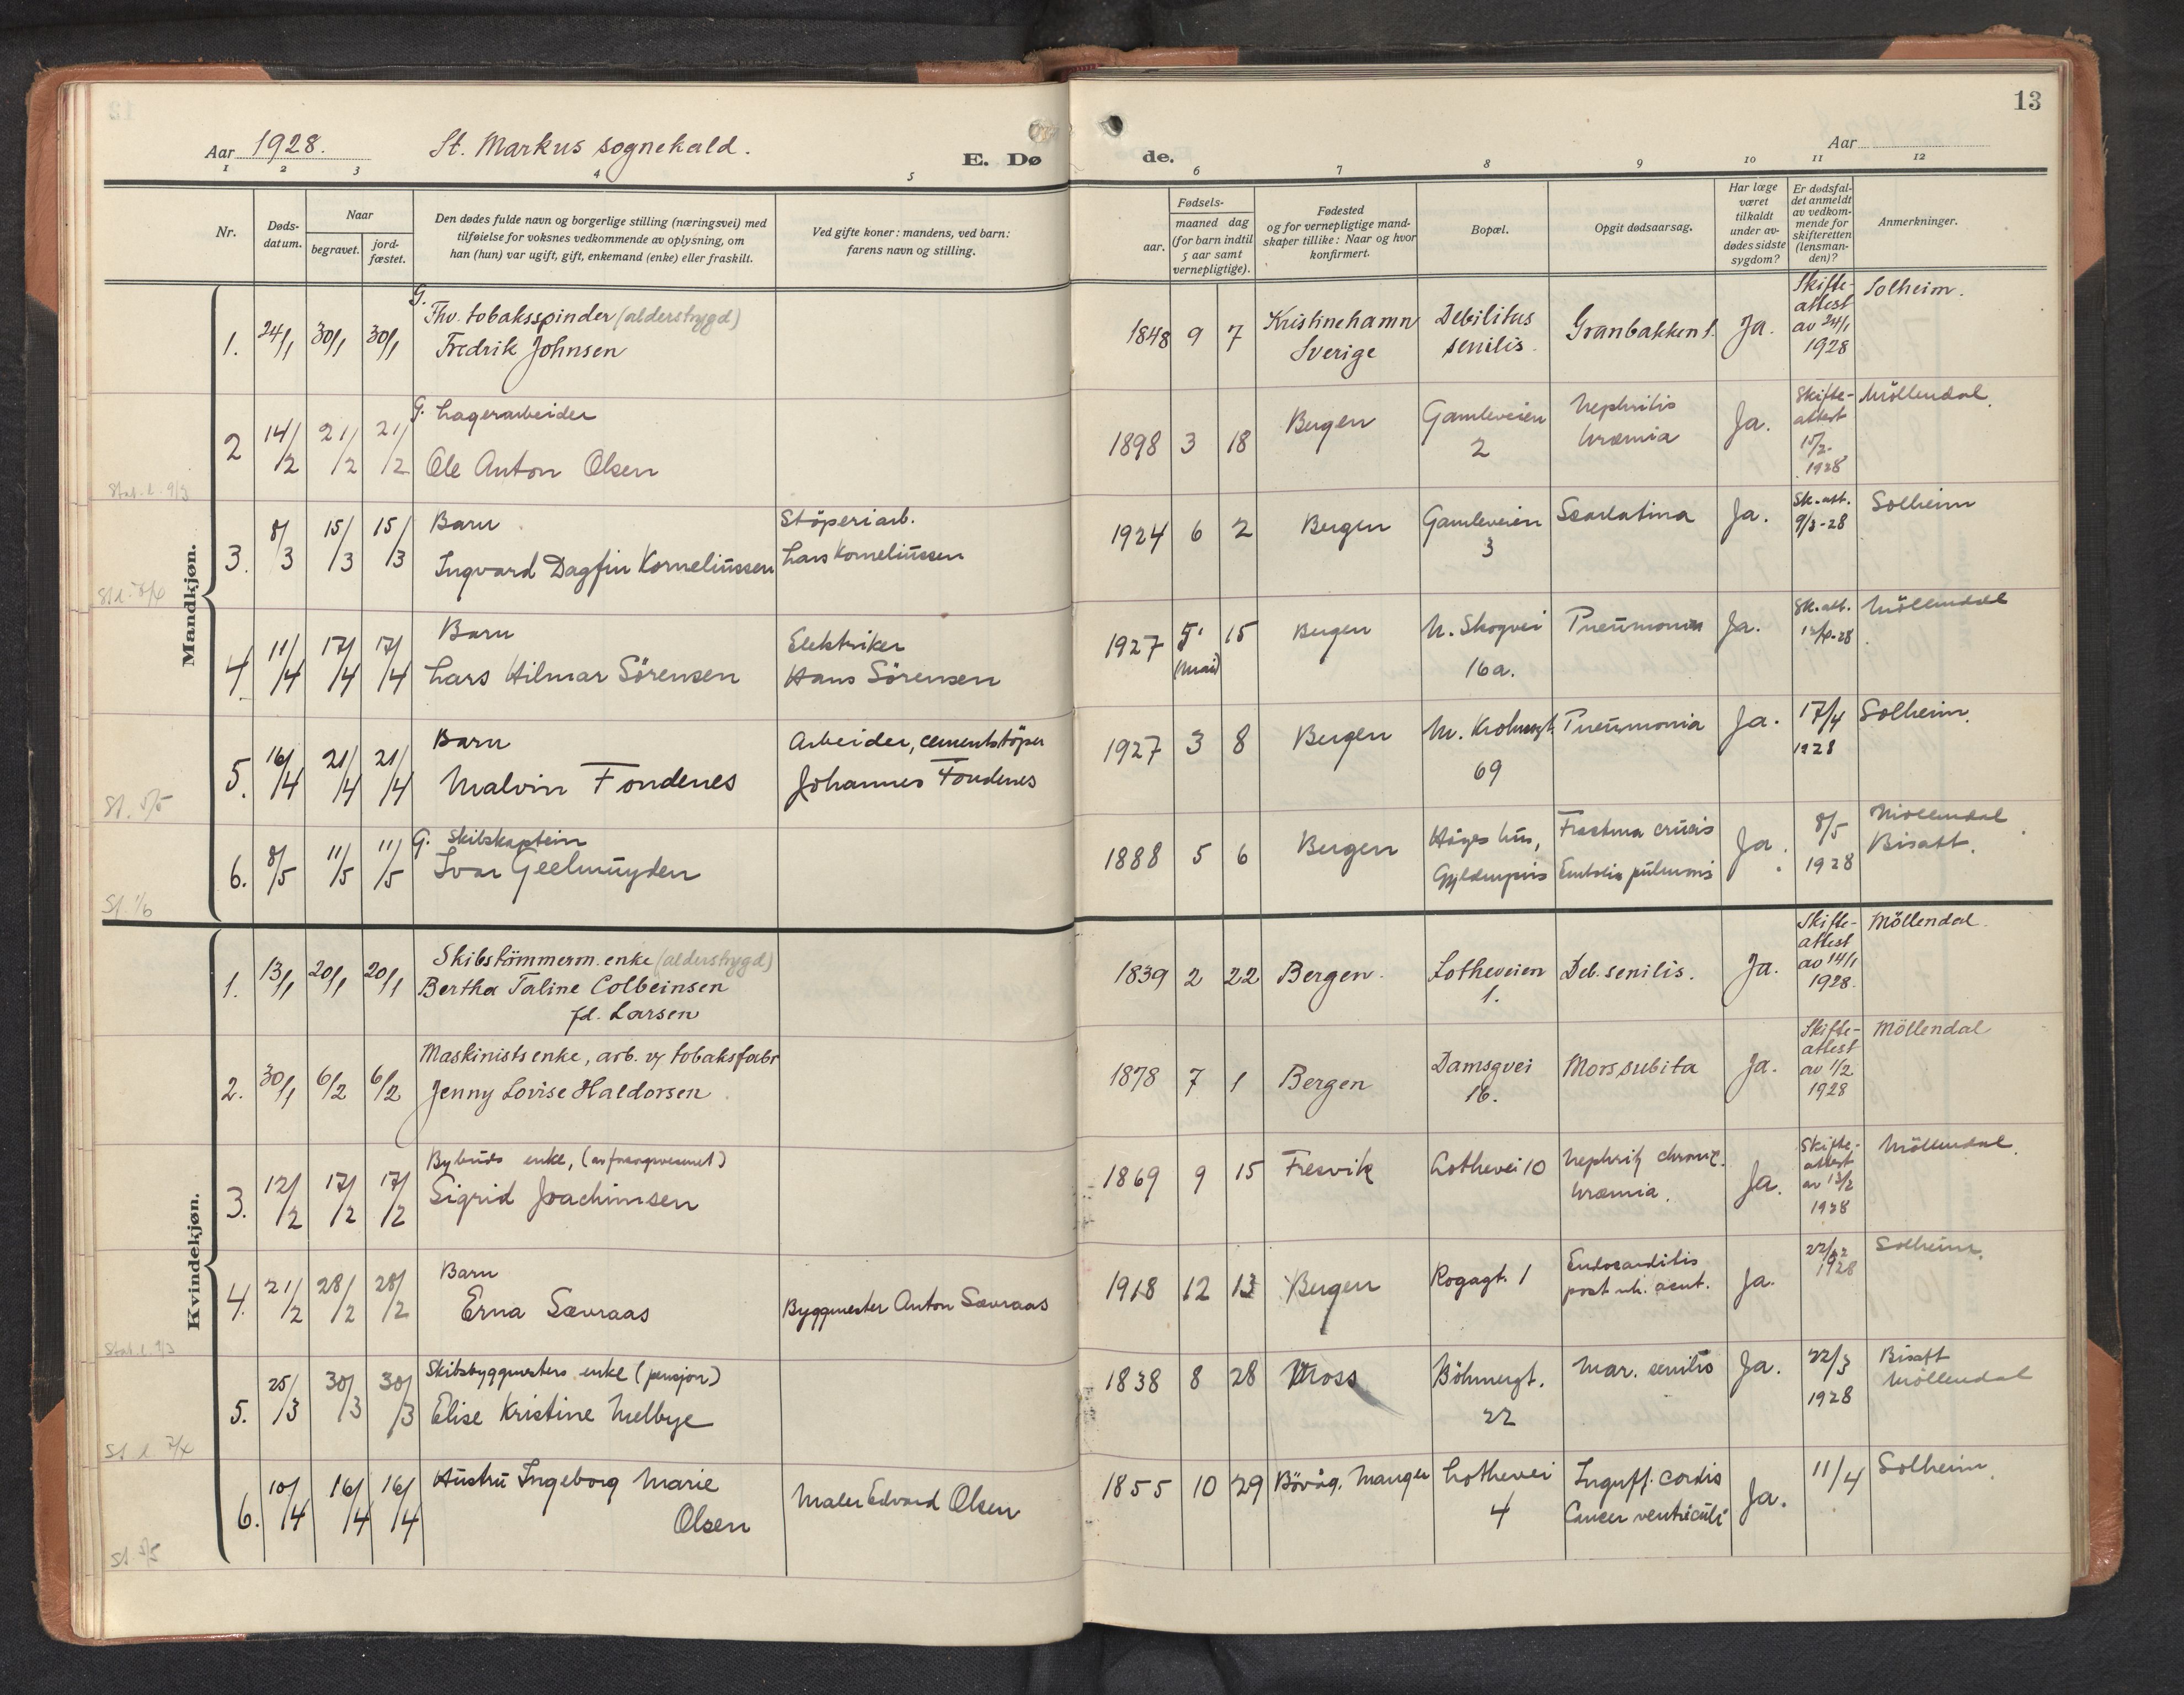 13
Aar 1928. St. Markus sognekald. E. Døde. Aar
1 2 3 4 5 6 7 8 9 10 11 12
Nr.
Døds-
datum.
Naar
begravet.
jord-
fæstet.
Den dødes fulde navn og borgerlige stilling (næringsvei) med
tilføielse for voksnes vedkommende av oplysning, om
han (hun) var ugift, gift, enkemand (enke) eller fraskilt.
Ved gifte koner: mandens, ved barn:
farens navn og stilling.
Fødsels-
aar.
maaned dag
(for barn indtil
5 aar samt
vernepligtige).
Fødested
og for vernepligtige mand-
skaper tillike: Naar og hvor
konfirmert.
Bopæl.
Opgit dødsaarsag.
Har læge
været
tilkaldt
under av-
dødes sidste
sygdom?
Er dødsfal-
det anmeldt
av vedkom-
mende for
skifteretten
(lensman-
den)?
Anmerkninger.
Mandkjøn.
1. 24/1 30/1 30/1
G.
Fhv. tobaksspinder (alderstrygd)
Fredrik Johnsen
1848 9 7
Kristinehamn
Sverige
Debilitus
senilis.
Granbakken 1.
Ja.
Skifte-
attest
av 24/1
1928
Solheim.
2 14/2 21/2 21/2
G. Lagerarbeider
Ole Anton Olsen
1898 3 18
Bergen
Gamleveien
2
Nephritis
Uræmia
Ja.
Skifte-
attest
15/2-
1928
Möllendal.
Stat. l. 9/3
3. 8/3 15/3 15/3
Barn
Ingvard Dagfin Korneliussen
Stöperiarb.
Lars Korneliussen
1924 6 2
Bergen
Gamleveien
3
Scarlatina
Ja.
Sk. att.
9/3-28
Solheim
4. 11/4 17/4 17/4
Barn
Lars Hilmar Sörensen
Elektriker
Hans Sörensen
1927 5. 15
(mai)
Bergen
N. Skogvei
16a.
Pneumonia
Ja.
Sk. att.
Möllendal
5. 16/4 21/4 21/4
Barn
Malvin Fondenes
Arbeider, cementstöper
Johannes Fondenes
1927 3 8
Bergen
M. Krohnsgt.
69
Pneumonia
Ja.
17/4
1928
Solheim.
St. 5/5
6. 8/5 11/5 11/5
G. Skibskaptein
Ivar Geelmuyden
1888 5 6
Bergen
Gyldenpris
Fractura cruris
Embolia pulmonis
Ja.
8/5
1928
Möllendal
Bisatt.
St. 1/6
Kvindekjøn.
1. 13/1 20/1 20/1
Skibstömmerm. enke (alderstrygd)
Bertha Taline Colbeinsen
fd. Larsen
1839 2 22
Bergen.
Lotheveien
1.
Deb. senilis.
Ja.
Skifte-
attest
av 14/1
1928.
Möllendal.
2. 30/1 6/2 6/2
Maskinists enke, arb. v/ tobaksfabr
Jenny Lovise Haldorsen
1878 7 1
Bergen
Damsgvei
16.
Mors subita
Ja.
Skifte-
attest
av 1/2
1928
Möllendal
3. 12/2 17/2 17/2
Bybuds enke, (av forsorgsvesenet)
Sigrid Joachimsen
1869 9 15
Fresvik
Lothevei 10
Nephrit. chronic.
Uræmia.
Ja.
Skifte-
attest
av 13/2
1928
Möllendal.
4. 21/2 28/2 28/2
Barn
Erna Sævraas
Byggmester Anton Sævraas
1918 12 13
Bergen
Rogagt. 1
Endocarditis
post rh. acut.
Ja.
22/2
1928
Solheim.
Stat. l. 9/3
5. 25/3 30/3 30/3
Skibsbyggmesters enke (pensjon)
Elise Kristine Melbye
1838 8 28
Moss
Böhmergt.
22
Mar. senilis
Ja.
22/3
1928
Bisatt
Möllendal
6. 10/4 16/4 16/4
Hustru Ingeborg Marie
Olsen
Maler Edvard Olsen
1855 10 29
Bövåg, Manger
Lothevei
4
Insuff. cordis
Cancer ventriculi
Ja.
11/4
Solheim.
St. 5/5